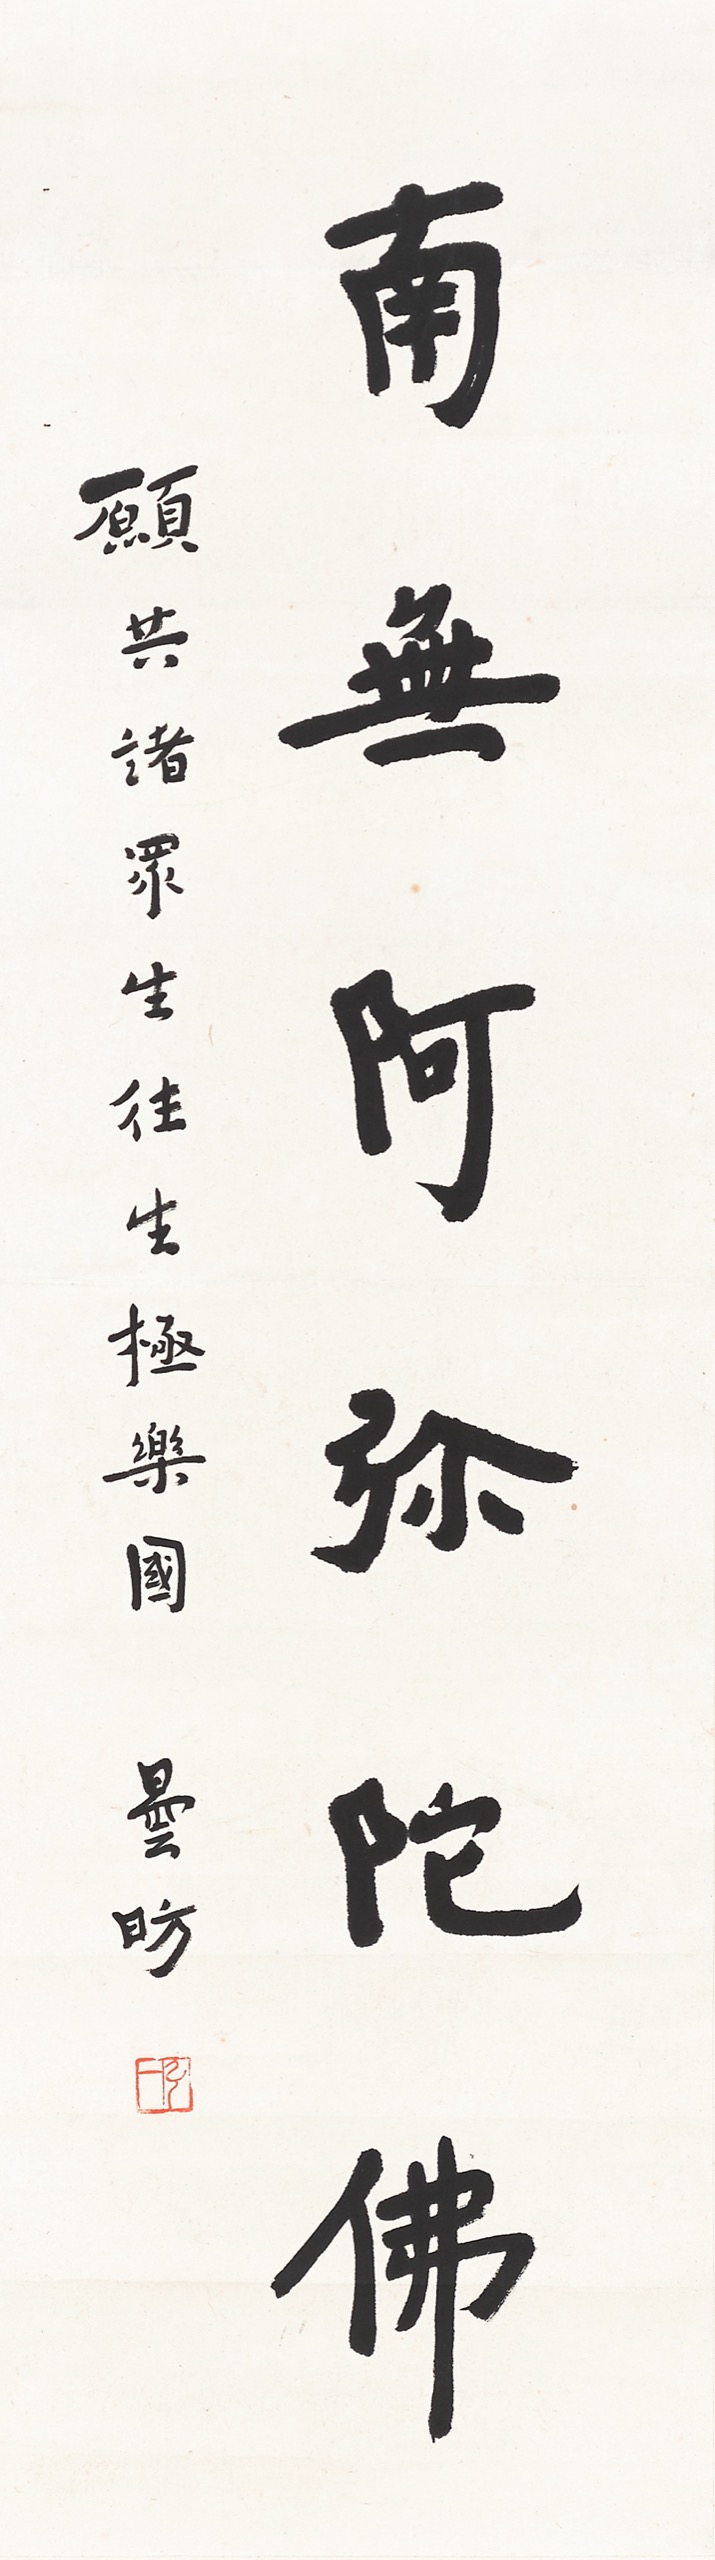 南無阿弥陀佛
願共諸眾生往生極樂國 曇昉